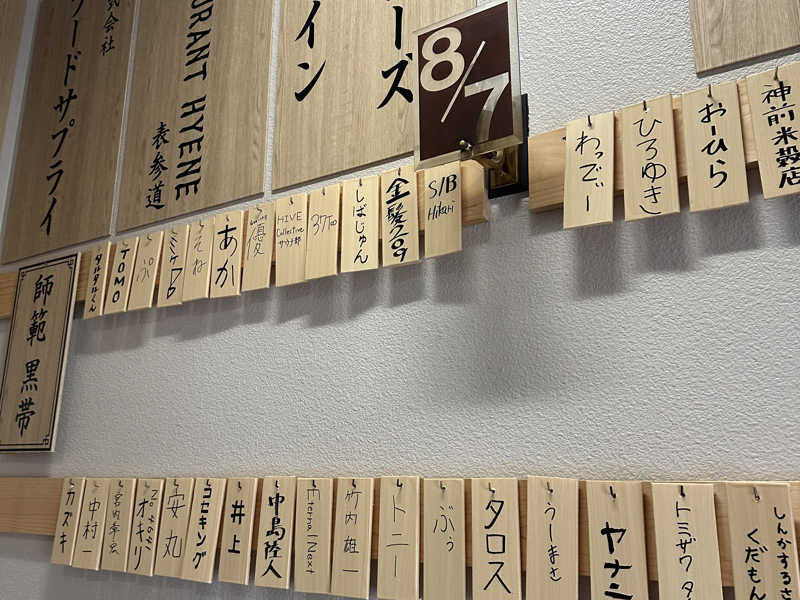 式会社
ードサプライ
URANT HYENE
表参道
イン
ーズ
8/7
わっでぃー
ひろゆき
おーひら
神前米穀店
タルタルくん
TOMO
ぷ
ミケDb
えね
あか
優
HIVE
Collective
サウナ部
しばじゅん
金髪209
S/B
Hikari
師範 黒帯
カズキ
中村一
オキリ
安丸
コセキング
井上
中島陸人
Eternal Next
竹内雄一
トニー
ぶぅ
タロス
うしまさ
ヤナシ
トミザワ タ
しんかするさ
くだもん